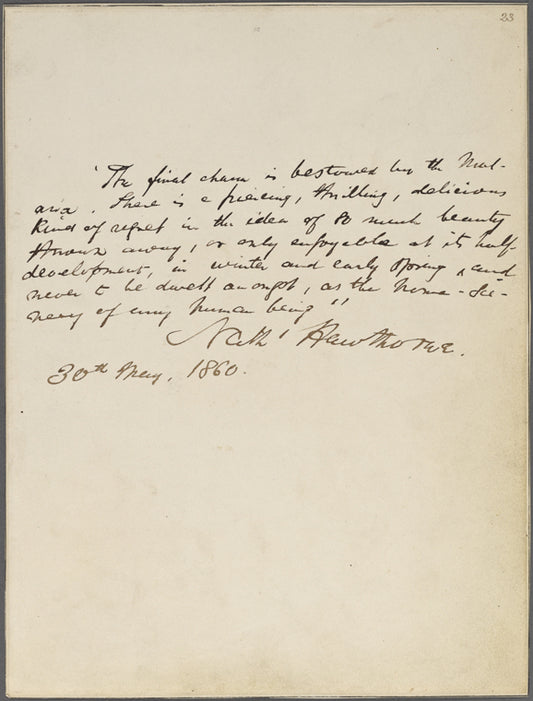 23
"The final charm is bestowed by the Mal-
aria. There is a piercing, thrilling, delicious
kind of regret in the idea of so much beauty
thrown away, or only enjoyable at its half-
development, in winter and early spring, and
never to be dwelt amongst, as the home-sce-
nery of any human being"
Nathl Hawthorne.
30th May, 1860.